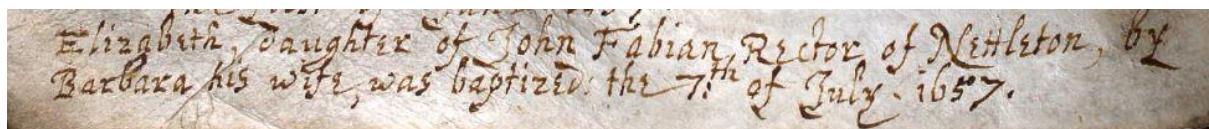 Elizabeth, daughter of John Fabian Rector of Nettleton, by
Barbara his wife, was baptized: the 7.th of July. 1657.